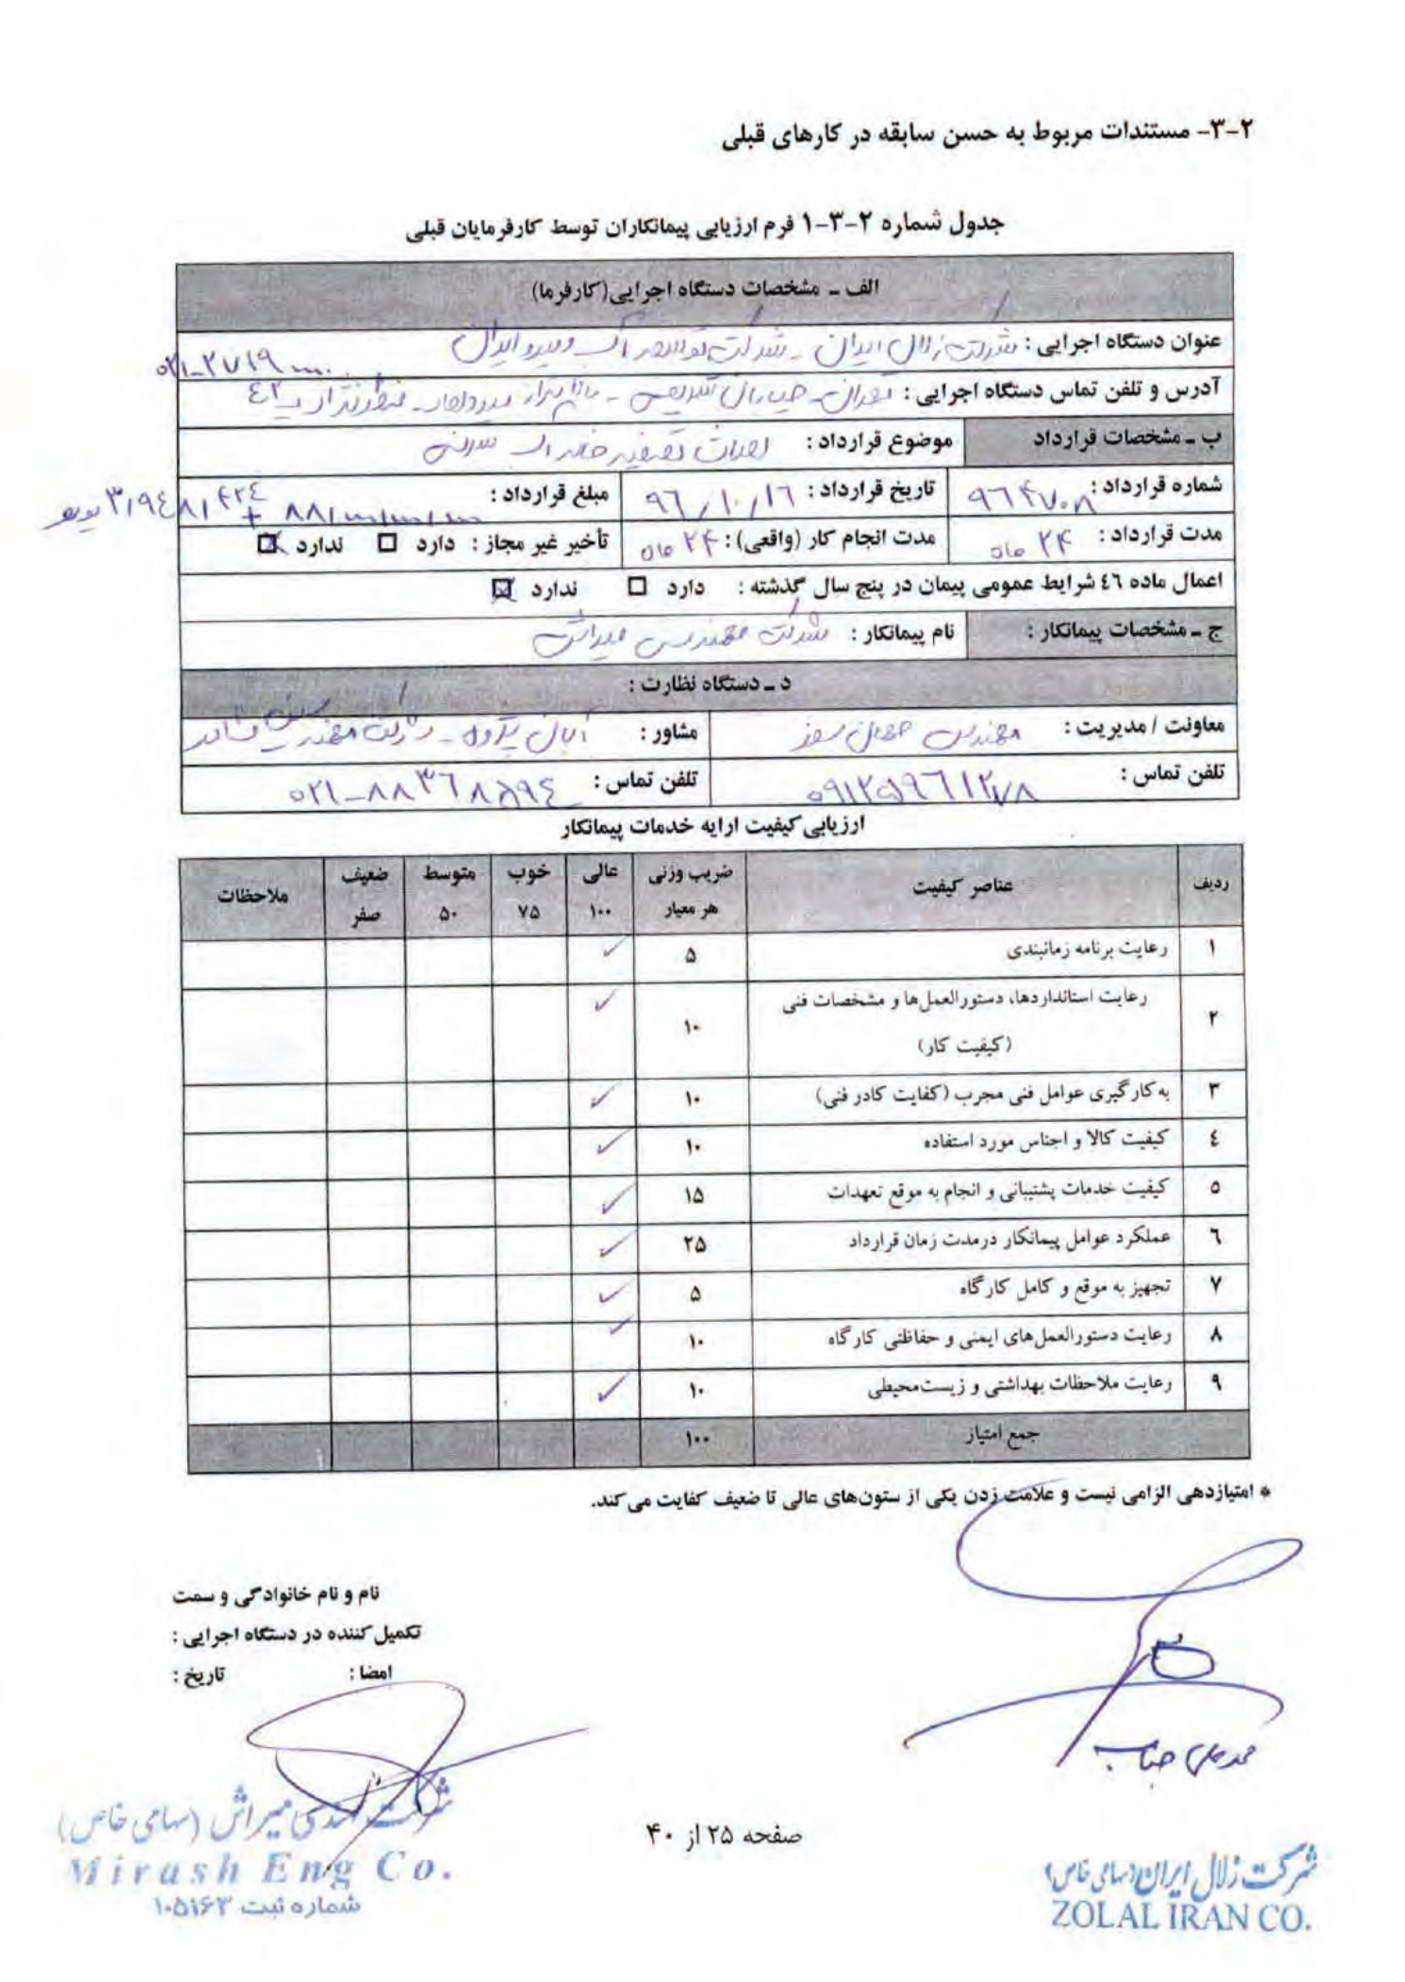 ۲-۳- مستندات مربوط به حسن سابقه در کارهای قبلی
جدول شماره ۲-۳-۱ فرم ارزیابی پیمانکاران توسط کارفرمایان قبلی
الف ـ مشخصات دستگاه اجرایی(کارفرما)
عنوان دستگاه اجرایی : شرکت زلال ایران - شرکت توسعه آب و نیرو ایران
آدرس و تلفن تماس دستگاه اجرایی : تهران - خیابان شریعتی -
ب ـ مشخصات قرارداد موضوع قرارداد : تصفیه خانه آب
شماره قرارداد : ۹۶۴۷۰۸ تاریخ قرارداد : ۹۶/۱۰/۱۶ مبلغ قرارداد :
مدت قرارداد : ۲۴ ماه مدت انجام کار (واقعی) : ۲۴ ماه تأخیر غیر مجاز : دارد ☐ ندارد ☒
اعمال ماده ٤٦ شرایط عمومی پیمان در پنج سال گذشته : دارد ☐ ندارد ☒
ج ـ مشخصات پیمانکار : نام پیمانکار : شرکت مهندسی میراش
د ـ دستگاه نظارت :
معاونت / مدیریت : مهندس مشاور :
تلفن تماس : ۰۹۱۲۵۹۶۱۲۷۸ تلفن تماس : ۰۲۱-۸۸۳۶۸۵۹٤
ارزیابی کیفیت ارایه خدمات پیمانکار
ردیف عناصر کیفیت ضریب وزنی هر معیار عالی ۱۰۰ خوب ۷۵ متوسط ۵۰ ضعیف صفر ملاحظات
۱ رعایت برنامه زمانبندی ۵ ✓
۲ رعایت استانداردها، دستورالعمل‌ها و مشخصات فنی (کیفیت کار) ۱۰ ✓
۳ به کارگیری عوامل فنی مجرب (کفایت کادر فنی) ۱۰ ✓
٤ کیفیت کالا و اجناس مورد استفاده ۱۰ ✓
۵ کیفیت خدمات پشتیبانی و انجام به موقع تعهدات ۱۵ ✓
٦ عملکرد عوامل پیمانکار درمدت زمان قرارداد ۲۵ ✓
۷ تجهیز به موقع و کامل کارگاه ۵ ✓
۸ رعایت دستورالعمل‌های ایمنی و حفاظتی کارگاه ۱۰ ✓
۹ رعایت ملاحظات بهداشتی و زیست‌محیطی ۱۰ ✓
جمع امتیاز ۱۰۰
* امتیازدهی الزامی نیست و علامت زدن یکی از ستون‌های عالی تا ضعیف کفایت می کند.
نام و نام خانوادگی و سمت
تکمیل کننده در دستگاه اجرایی :
امضا : تاریخ :
شرکت مهندسی میراش (سهامی خاص)
Mirash Eng Co.
شماره ثبت ۱۰۵۱۶۳
صفحه ۲۵ از ۴۰
شرکت زلال ایران (سهامی خاص)
ZOLAL IRAN CO.